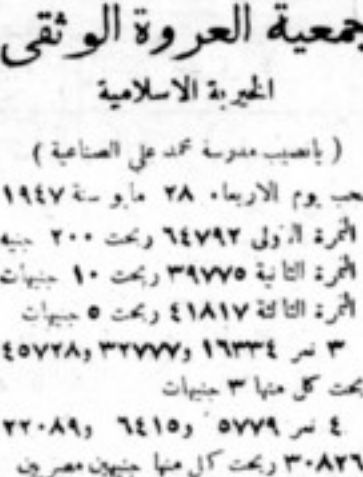 جمعية العروة الوثقى
الخيرية الاسلامية
( يانصيب مدرسة محمد علي الصناعية )
سحب يوم الاربعاء ٢٨ مايو سنة ١٩٤٧
النمرة الاولى ٦٤٧٩٢ ربحت ٢٠٠ جنيه
النمرة الثانية ٣٩٧٧٥ ربحت ١٠ جنيهات
النمرة الثالثة ٤١٨١٧ ربحت ٥ جنيهات
٣ نمر ١٦٣٣٤ و٣٢٧٧٧ و٤٥٧٢٨
ربحت كل منها ٣ جنيهات
٤ نمر ٥٧٧٩ و٦٤١٥ و٢٢٠٨٩
٣٠٨٢٦ ربحت كل منها جنيهين مصريين